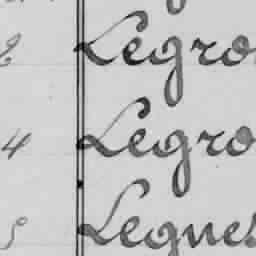 2 Legro
4 Legro
5 Legnes